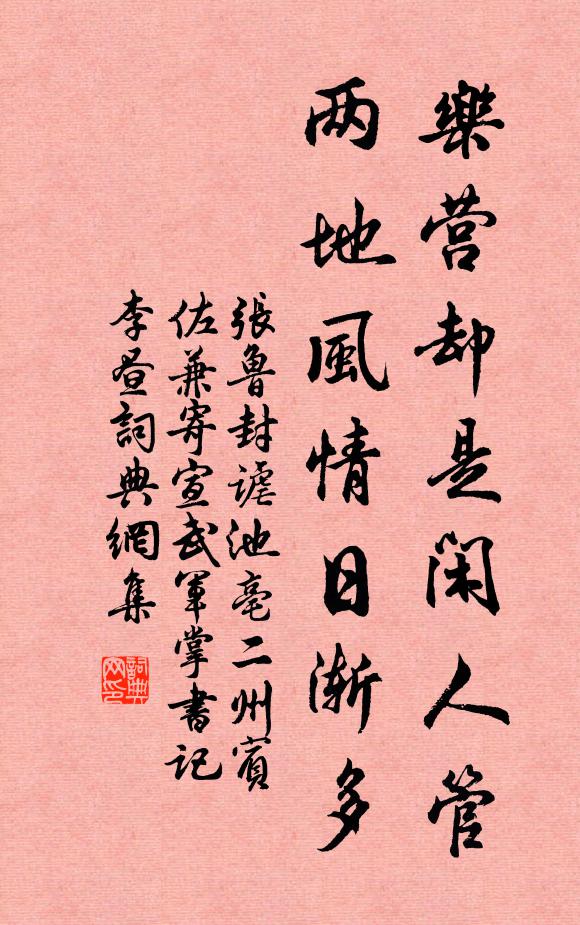 樂营却是闲人管
两地風情日渐多
張魯封謔池亳二州賓
佐兼寄宣武軍掌書記
李昼詞典網集
詞典网印